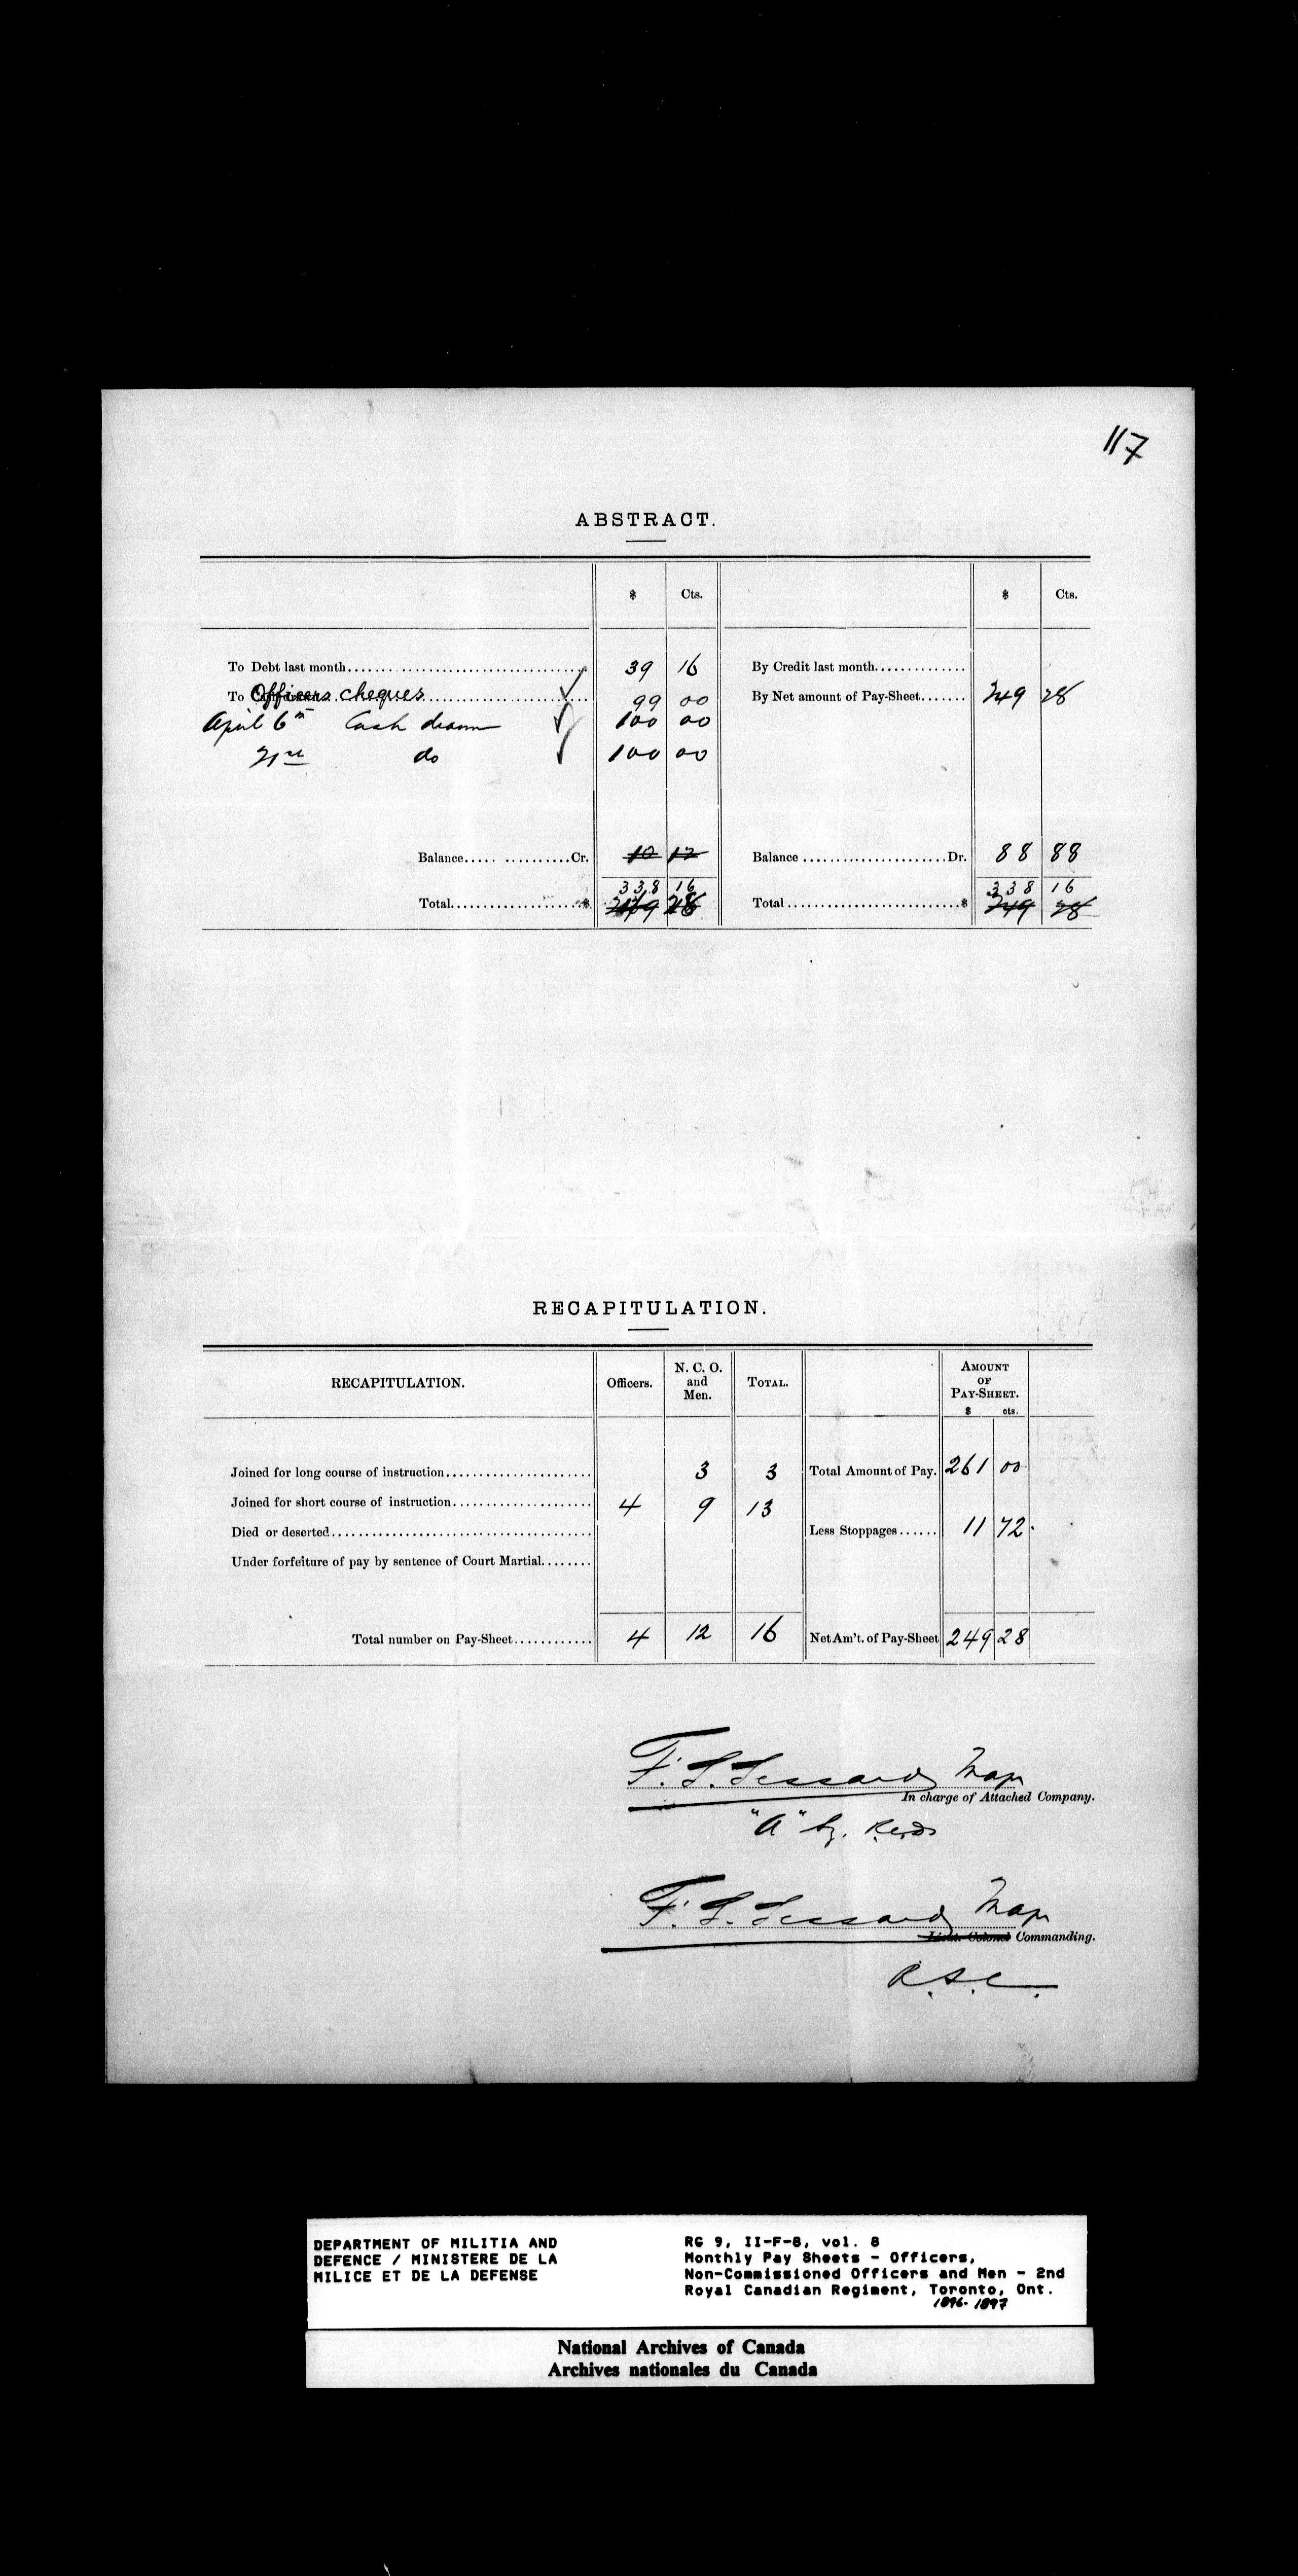 117
ABSTRACT.
$ Cts. $ Cts.
To Debt last month 39 16 By Credit last month
To Officers cheques 99 00 By Net amount of Pay-Sheet 249 28
April 6th Cash drawn 100 00
21st do 100 00
Balance Cr. 10 12 Balance Dr. 88 88
338 16 338 16
Total $ 249 28 Total $ 249 28
RECAPITULATION.
RECAPITULATION. Officers. N. C. O. and Men. TOTAL. AMOUNT OF PAY-SHEET. $ cts.
Joined for long course of instruction 3 3 Total Amount of Pay. 261 00
Joined for short course of instruction 4 9 13
Died or deserted Less Stoppages 11 72
Under forfeiture of pay by sentence of Court Martial
Total number on Pay-Sheet 4 12 16 Net Am't. of Pay-Sheet 249 28
F. L. Lessard Major
In charge of Attached Company.
"A" Sq. R.C.D.
F. L. Lessard Major
Lieut.-Colonel Commanding.
DEPARTMENT OF MILITIA AND
DEFENCE / MINISTERE DE LA
MILICE ET DE LA DEFENSE
RG 9, II-F-8, vol. 8
Monthly Pay Sheets - Officers,
Non-Commissioned Officers and Men - 2nd
Royal Canadian Regiment, Toronto, Ont.
1896-1897
National Archives of Canada
Archives nationales du Canada